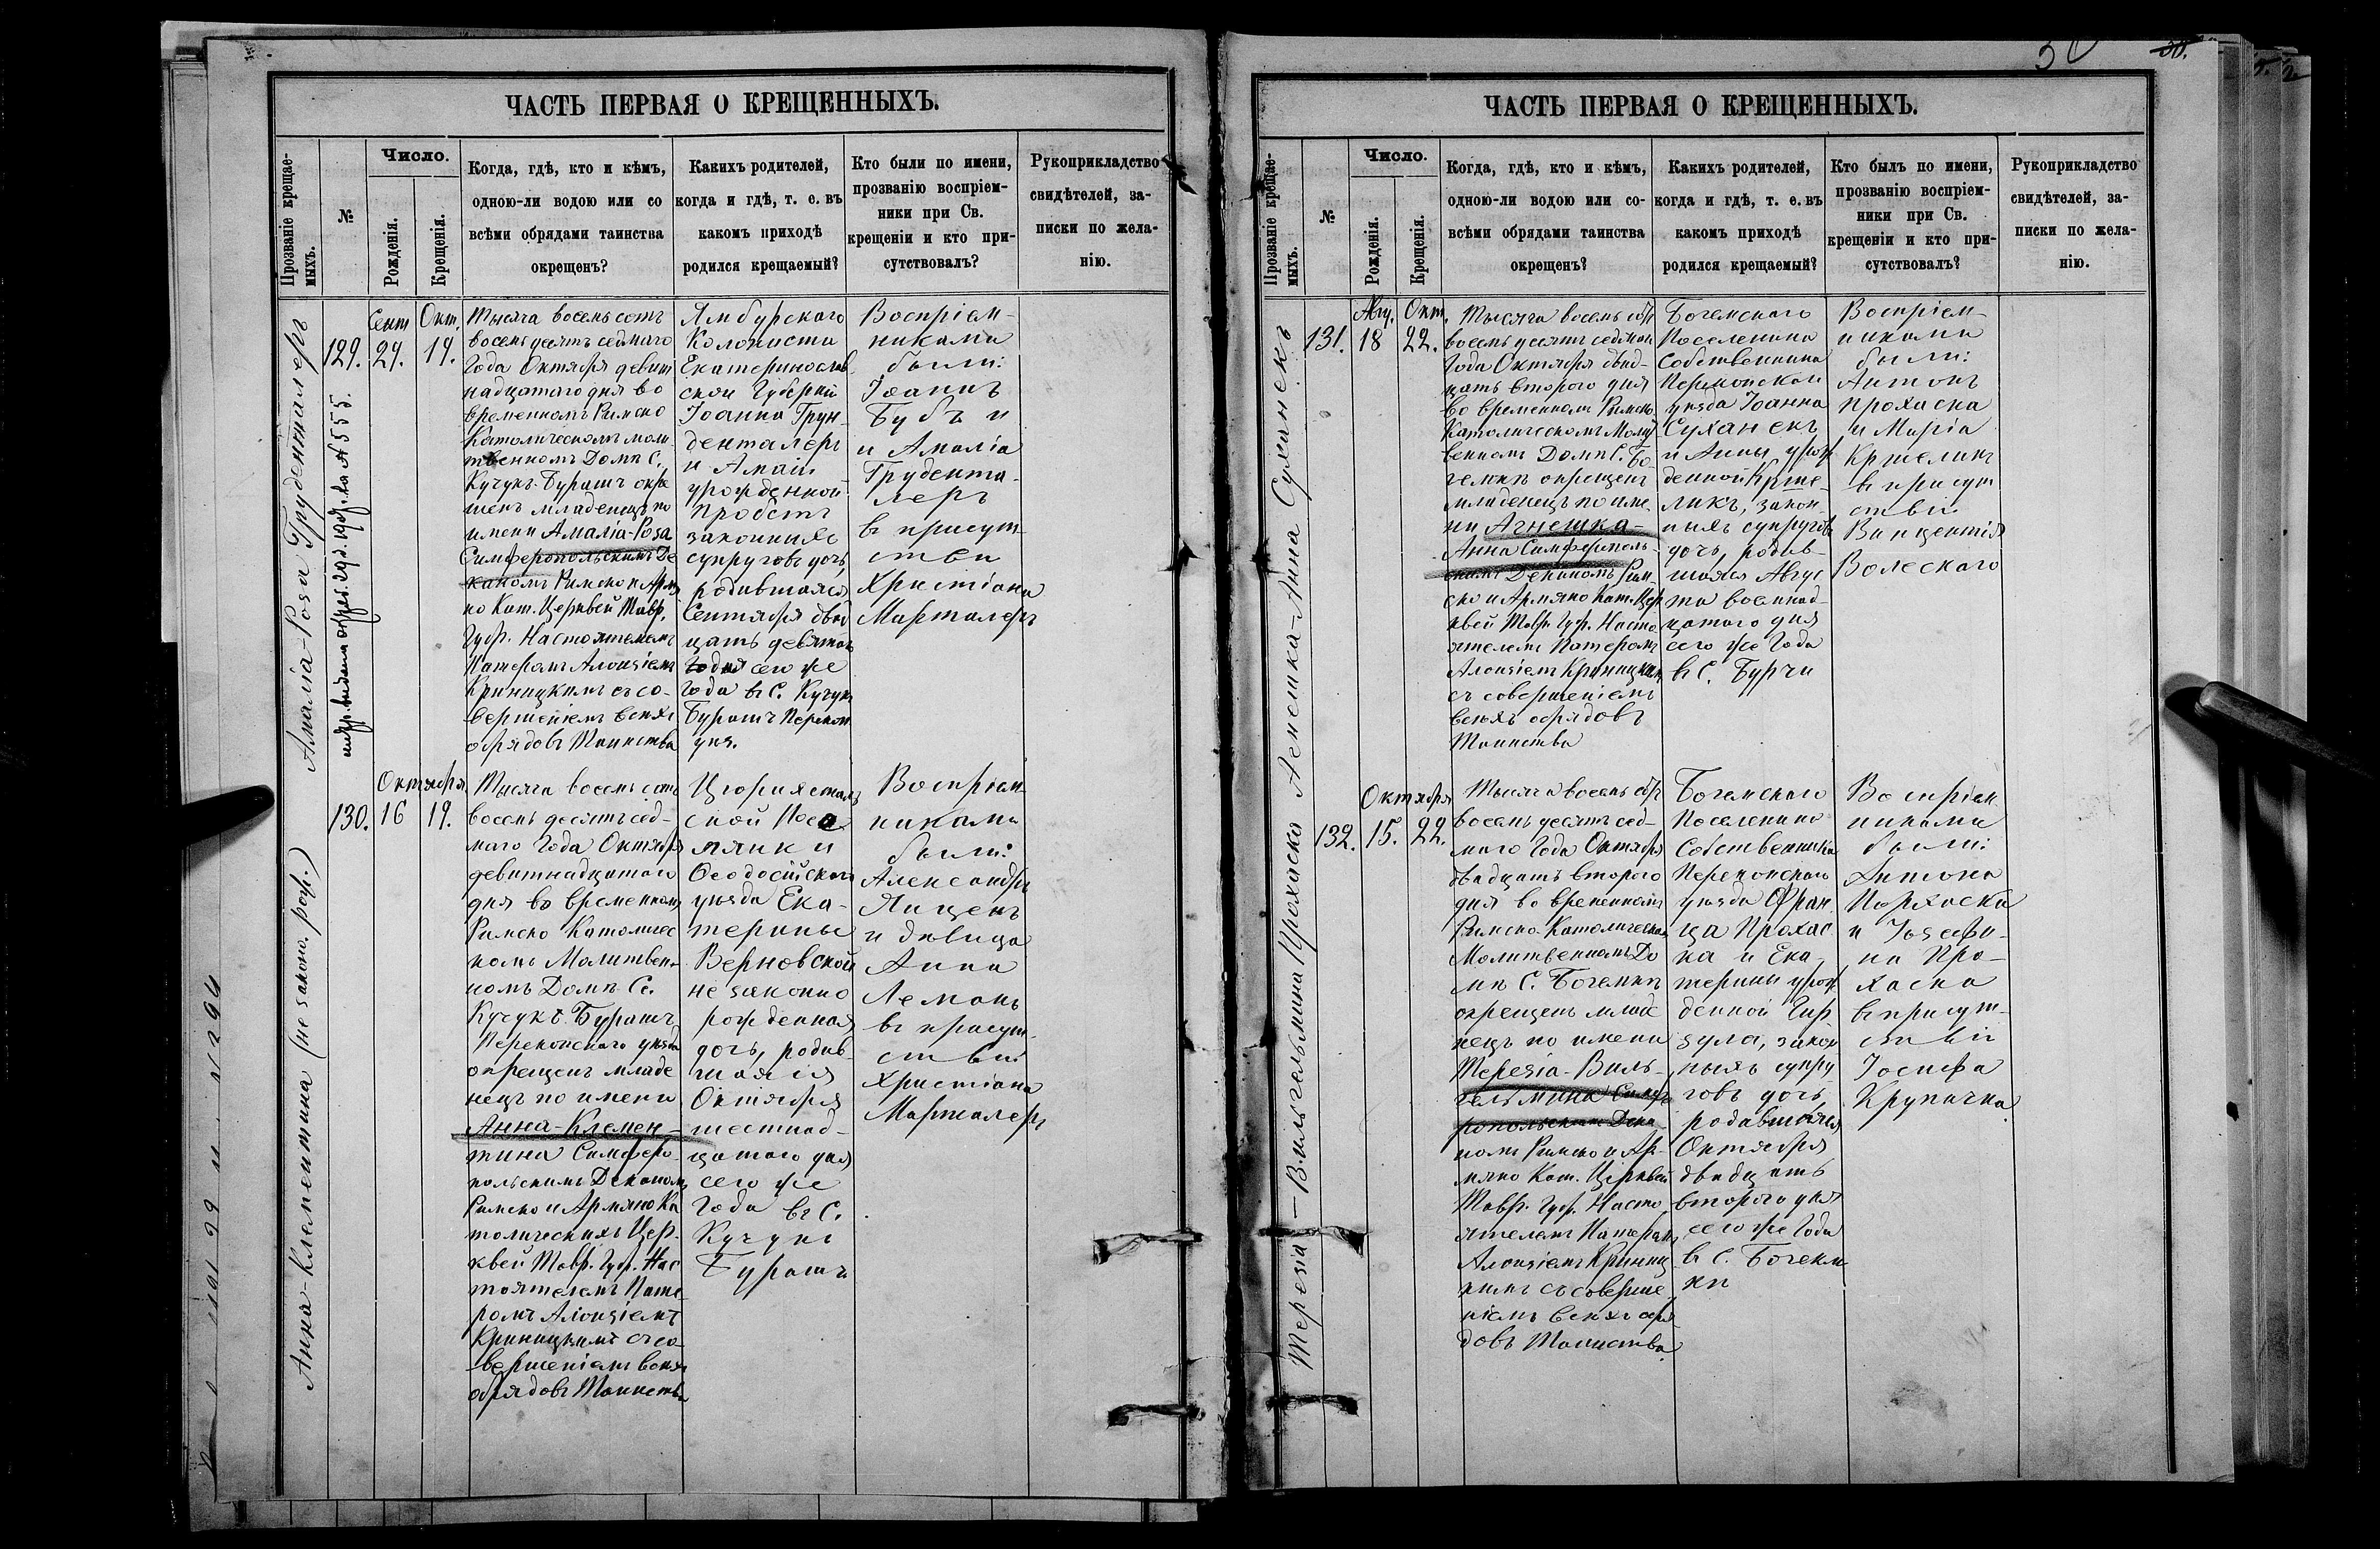 ЧАСТЬ ПЕРВАЯ О КРЕЩЕННЫХЪ.
Прозваніе крещае-
мыхъ.
№
Число.
Рожденія.
Крещенія.
Когда, гдѣ, кто и кѣмъ,
одною-ли водою или со
всѣми обрядами таинства
окрещенъ?
Какихъ родителей,
когда и гдѣ, т. е. въ
какомъ приходѣ
родился крещаемый?
Кто были по имени,
прозванію воспріем-
ники при Св.
крещеніи и кто при-
сутствовалъ?
Рукоприкладство
свидѣтелей, за-
писки по жела-
нію.
Амалія-Роза Груденталеръ
129.
Сент
29.
Окт.
19.
Тысяча восемь сотъ
восемьдесятъ седмаго
Года Октября девят
надцатаго дня во
временномъ Римско
Католическомъ моли
твенномъ Домѣ С.
Кучукъ-Бурашъ окре
щенъ младенецъ по
имени Амалія-Роза
Симферопольскимъ Де
каномъ Римско и Армя
но Кат. Церквей Тавр.
Губ. Настоятелемъ
Патеромъ Алоизіемъ
Криницкимъ съ со-
вершеніемъ всѣхъ
обрядовъ Таинства
Ямбурскаго
Колониста
Екатеринослав
ской Губерніи
Іоанна Грун
денталеръ
и Амаліи
урожденной
Пробстъ
законныхъ
супруговъ дочь,
родившаяся
Сентября двад
цать девятаго
дня сего же
Года въ С. Кучукъ
Бурашъ Перекоп
уѣз.
Воспріем-
никами
были:
Іоаннъ
Бубъ и
и Амалія
Грудента-
леръ
въ присут-
ствіи
Христіана
Марталеръ
Анна-Клементина (не законо. рож.)
130.
Октября
16
19.
Тысяча восемь сотъ
восемь десятъ сед-
маго Года Октября
девятнадцатаго
дня во временномъ
Римско Католичес
комъ Молитвен-
номъ Домѣ С.
Кучукъ-Бурашъ
Перекопскаго уѣзда
окрещенъ младе
нецъ по имени
Анна-Клемен-
тина Симферо-
польскимъ Деканомъ
Римско и Армяно Ка
толическихъ Цер-
квей Тавр. Губ. Нас
тоятелемъ Пате
ромъ Алоизіемъ
Криницкимъ съ со-
вершеніемъ всѣхъ
обрядовъ Таинства
Цюрихсталь
ской Посе
лянки
Ѳеодосійскаго
уѣзда Ека-
терины
Верновской
не законно
рожденная
дочь, родив-
шаяся
Октября
шестнад-
цатаго дня
сего же
Года въ С.
Кучукъ
Бурашъ
Воспріем
никами
были:
Александръ
Яиценъ
и дѣвица
Анна
Лемань
въ присут-
ствіи
Христіана
Марталеръ
ЧАСТЬ ПЕРВАЯ О КРЕЩЕННЫХЪ.
Прозваніе крещае-
мыхъ.
№
Число.
Рожденія.
Крещенія.
Когда, гдѣ, кто и кѣмъ,
одною-ли водою или со-
всѣми обрядами таинства
окрещенъ?
Какихъ родителей,
когда и гдѣ, т. е. въ
какомъ приходѣ
родился крещаемый?
Кто былъ по имени,
прозванію воспріем-
ники при Св.
крещеніи и кто при-
сутствовалъ?
Рукоприкладство
свидѣтелей, за-
писки по жела-
нію.
Анна Суханекъ
131.
Авг.
18
Окт.
22.
Тысяча восемь сотъ
восемь десятъ седьмаго
Года Октября двад-
цать втораго дня
во временномъ Римско
Католическомъ Молит
венномъ Домѣ С. Бо-
гемкѣ окрещенъ
младенецъ по име
ни Агнешка-
Анна Симферополь-
скимъ Деканомъ Рим-
ско и Армяно Кат. Цер
квей Тавр. Губ. Насто
ятелемъ Патеромъ
Алоизіемъ Криницкимъ
съ совершеніемъ
всѣхъ обрядовъ
Таинства
Богемскаго
Поселенина
Собственника
Перекопскаго
уѣзда Іоанна
Суханекъ
и Анны урож
денной Крше-
ликъ, закон-
ныхъ супруговъ
дочь, родив-
шаяся Авгус
та восемнад-
цатаго дня
сего же Года
въ С. Бурчи
Воспріем-
никами
были:
Антонъ
Прохаска
и Марія
Кршеликъ
въ присут
ствіи
Винцентія
Волескаго
Терезія-Вильгельмина Прохаска
132.
Октября
15.
22.
Тысяча восемь сотъ
восемь десятъ сед-
маго Года Октября
двадцать втораго
дня во временномъ
Римско-Католическомъ
Молитвенномъ До
мѣ С. Богемкѣ
окрещенъ младе
нецъ по имени
Терезія-Виль-
гельмина Симфе
ропольскимъ Дека
номъ Римско и Ар-
мяно Кат. Церквей
Тавр. Губ. Насто
ятелемъ Патеромъ
Алоизіемъ Криниц
кимъ съ соверше
ніемъ всѣхъ обря
довъ Таинства
Богемскаго
Поселенина
Собственника
Перекопскаго
уѣзда Фран
ца Прохас
ка и Ека-
терины урож
денной Гир
зула, закон
ныхъ супру
говъ дочь
родившаяся
Октября
двадцать
втораго дня
сего же Года
въ С. Богем
кѣ
Воспріем
никами
были:
Антонъ
Прохаска
и Іозефи-
на Про-
хаска
въ присут-
ствіи
Іосифа
Крупичка